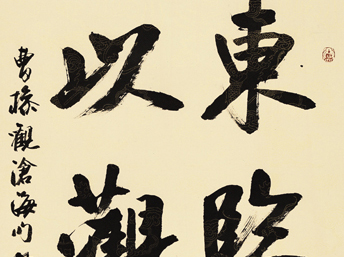 東臨
以觀
曹操觀滄海句